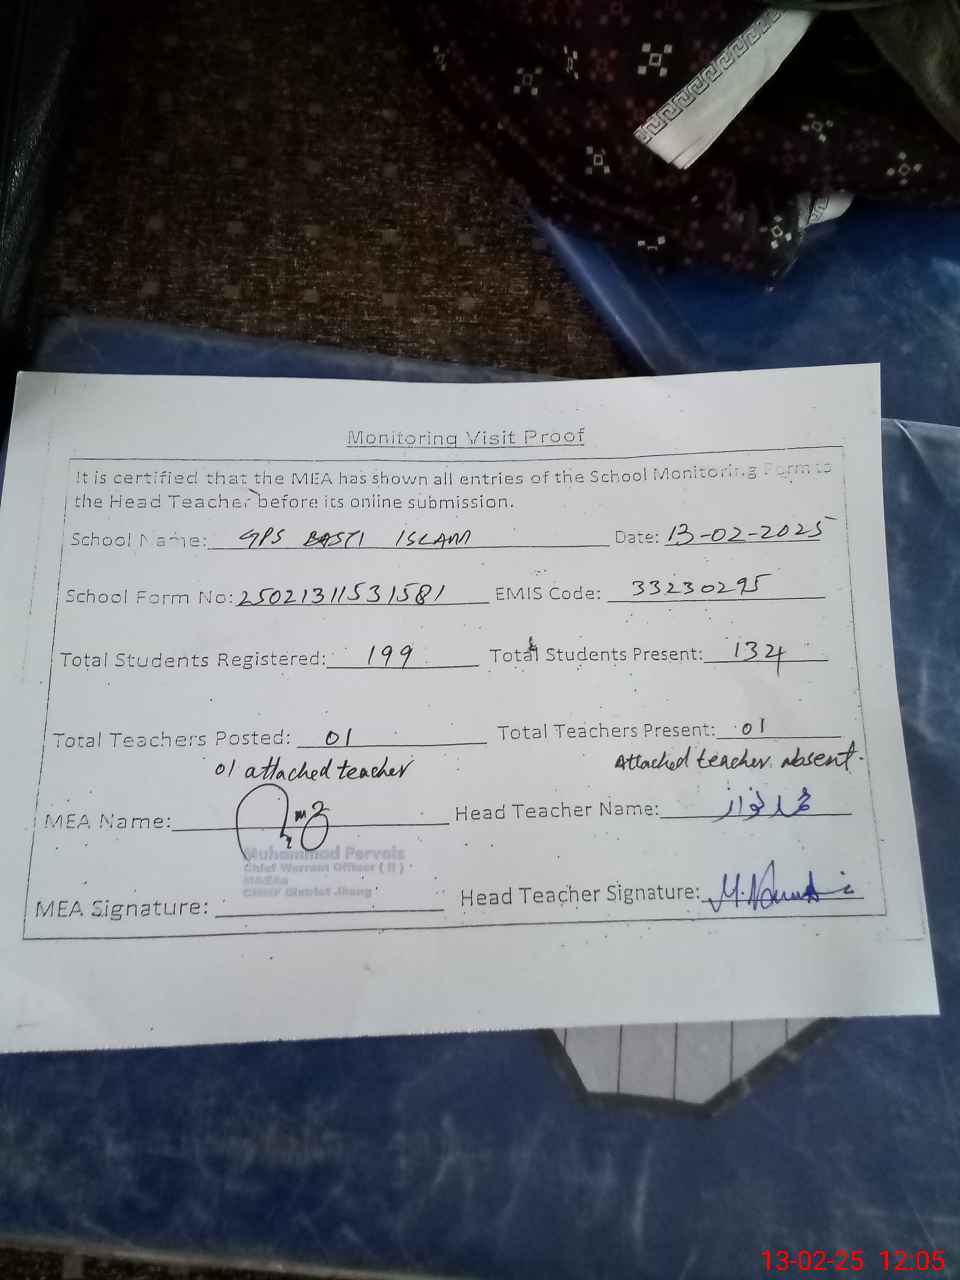 Monitoring Visit Proof
It is certified that the MEA has shown all entries of the School Monitoring Form to
the Head Teacher before its online submission.
School Name: GPS BASTI ISLAM Date: 13-02-2025
School Form No: 25021311531581 EMIS Code: 33230295
Total Students Registered: 199 Total Students Present: 134
Total Teachers Posted: 01 Total Teachers Present: 01
01 attached teacher Attached teacher absent.
MEA Name: Head Teacher Name: محمد نواز
Muhammad Pervais
Chief Warrant Officer ( R )
MAEAs
CMMF District Jhang
MEA Signature: Head Teacher Signature: M. Nawaz
13-02-25 12:05